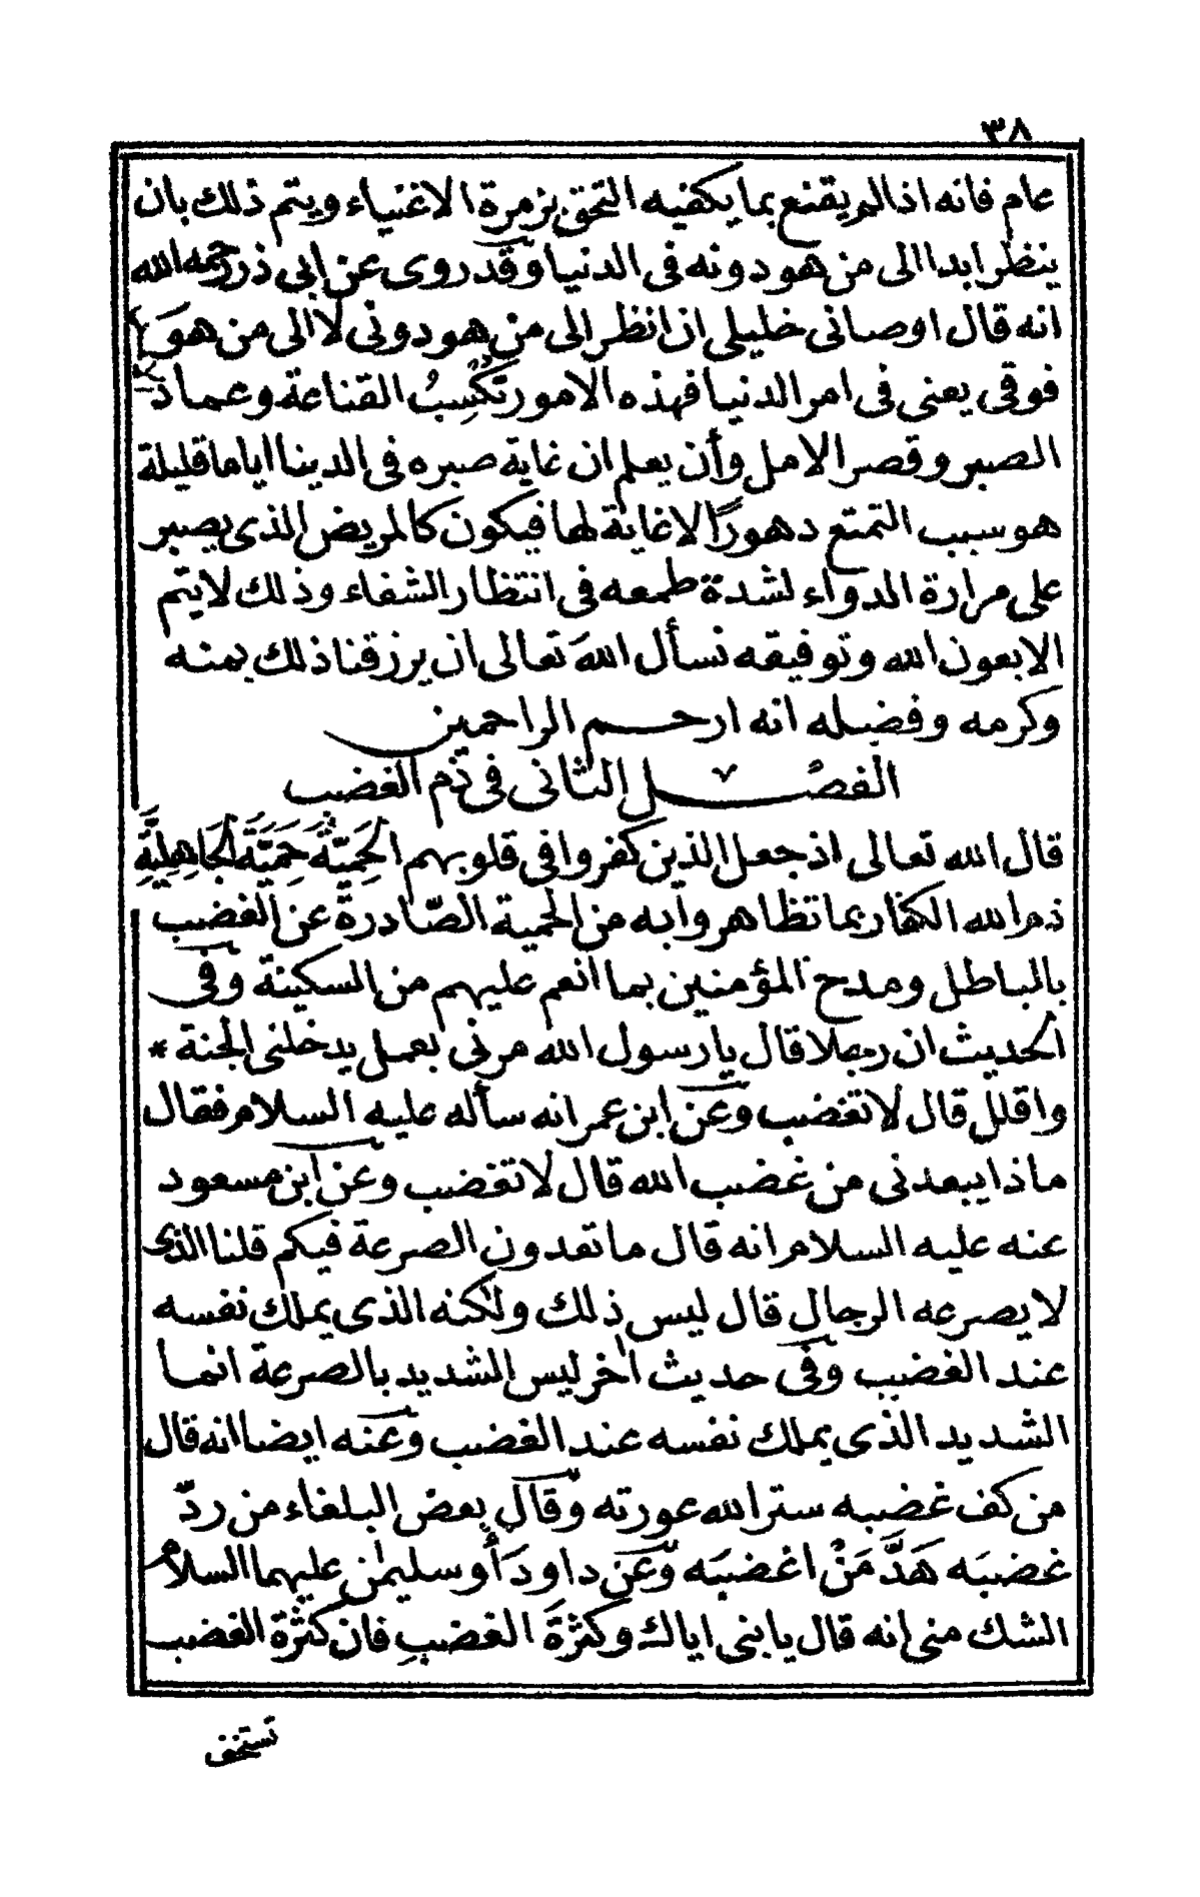 ٣٨
عام فانه اذا لم يقنع بما يكفيه التحق بزمرة الاغنياء ويتم ذلك بان
ينظر ابدا الى من هو دونه فى الدنيا وقد روى عن ابى ذر رحمه الله
انه قال اوصانى خليلى ان انظر الى من هو دونى لا الى من هو
فوقى يعنى فى امر الدنيا فهذه الامور تَكْسِبُ القناعة وعماد
الصبر وقصر الامل وأن يعلم ان غاية صبره فى الدينا اياما قليلة
هو سبب التمتع دهورًا لا غاية لها فيكون كالمريض الذى يصبر
على مرارة الدواء لشدة طمعه فى انتظار الشفاء وذلك لا يتم
الا بعون الله وتوفيقه نسأل اللهَ تعالى ان يرزقنا ذلك بمنه
وكرمه وفضله انه ارحم الراحمين
الفصل الثانى فى ذم الغضب
قال الله تعالى اذ جعل الذين كفروا فى قلوبهم الحَمِيَّةَ حَمِيَّةَ الجَاهِلِيَّةِ
ذم الله الكفار بما تظاهروا به من الحمية الصّادرة عن الغضب
بالباطل ومدح المؤمنين بما انعم عليهم من السكينة وفى
الحديث ان رجلا قال يا رسول الله مرنى بعمل يدخلنى الجنة *
واقلل قال لا تغضب وعن ابن عمر انه سأله عليه السلام فقال
ماذا يبعدنى من غضب الله قال لا تغضب وعن ابن مسعود
عنه عليه السلام انه قال ما تعدون الصرعة فيكم قلنا الذى
لا يصرعه الرجال قال ليس ذلك ولكنه الذى يملك نفسه
عند الغضب وفى حديث اخر ليس الشديد بالصرعة انما
الشديد الذى يملك نفسه عند الغضب وعنه ايضا انه قال
من كف غضبه ستر الله عورته وقال بعض البلغاء من ردّ
غضبَه هَدَّ مَنْ اغضبَه وعن داود أو سليمن عليهما السلام
الشك منى انه قال يا بنى اياك وكثرَةَ الغضبِ فان كثرة الغضب
تستخف